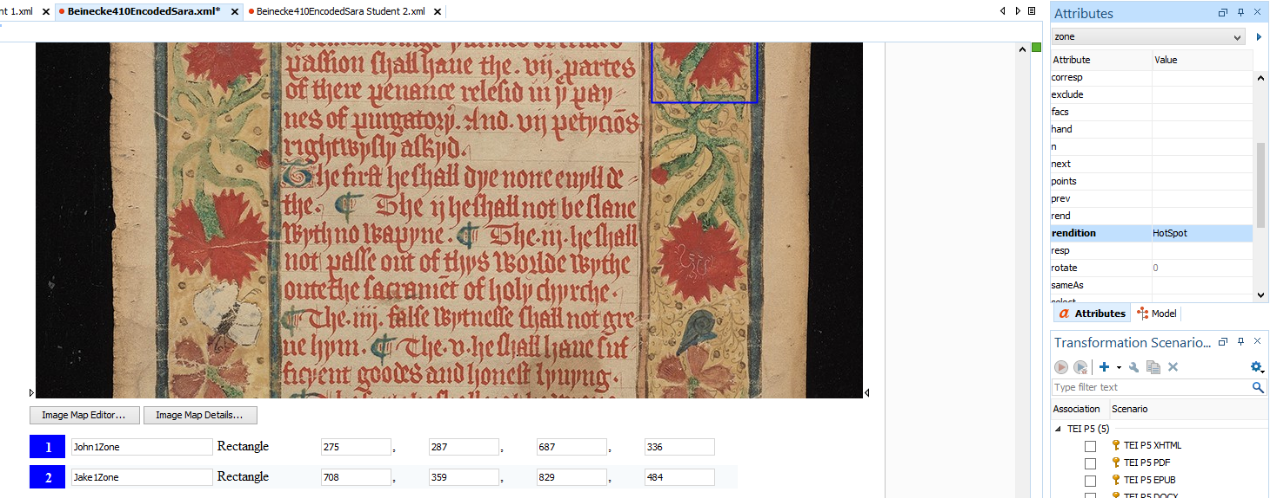 nt 1.xml × Beinecke410EncodedSara.xml* × Beinecke410EncodedSara Student 2.xml ×
passion shall haue the . vij . partes
of there penance relesid in ij pay
nes of purgatory . And . vij petyciõs
rightwysly askyd .
The first he shall dye none euyll de
the . ¶ The ij he shall not be slane
Wyth no Wapyne . ¶ The . iij . he shall
not passe out of thys Worlde Wythe
oute the sacramẽt of holy chyrche .
¶ The . iiij . false Wytnesse shall not gre
ue hym . ¶ The . v . he shall haue suf
ficyent goodes and honest lyuyng .
Image Map Editor...
Image Map Details...
1 John1Zone Rectangle 275 , 287 , 687 , 336
2 Jake1Zone Rectangle 708 , 359 , 829 , 484
Attributes
zone
Attribute Value
corresp
exclude
facs
hand
n
next
points
prev
rend
rendition HotSpot
resp
rotate 0
sameAs
select
Attributes Model
Transformation Scenario...
Type filter text
Association Scenario
TEI P5 (5)
TEI P5 XHTML
TEI P5 PDF
TEI P5 EPUB
TEI P5 DOCX